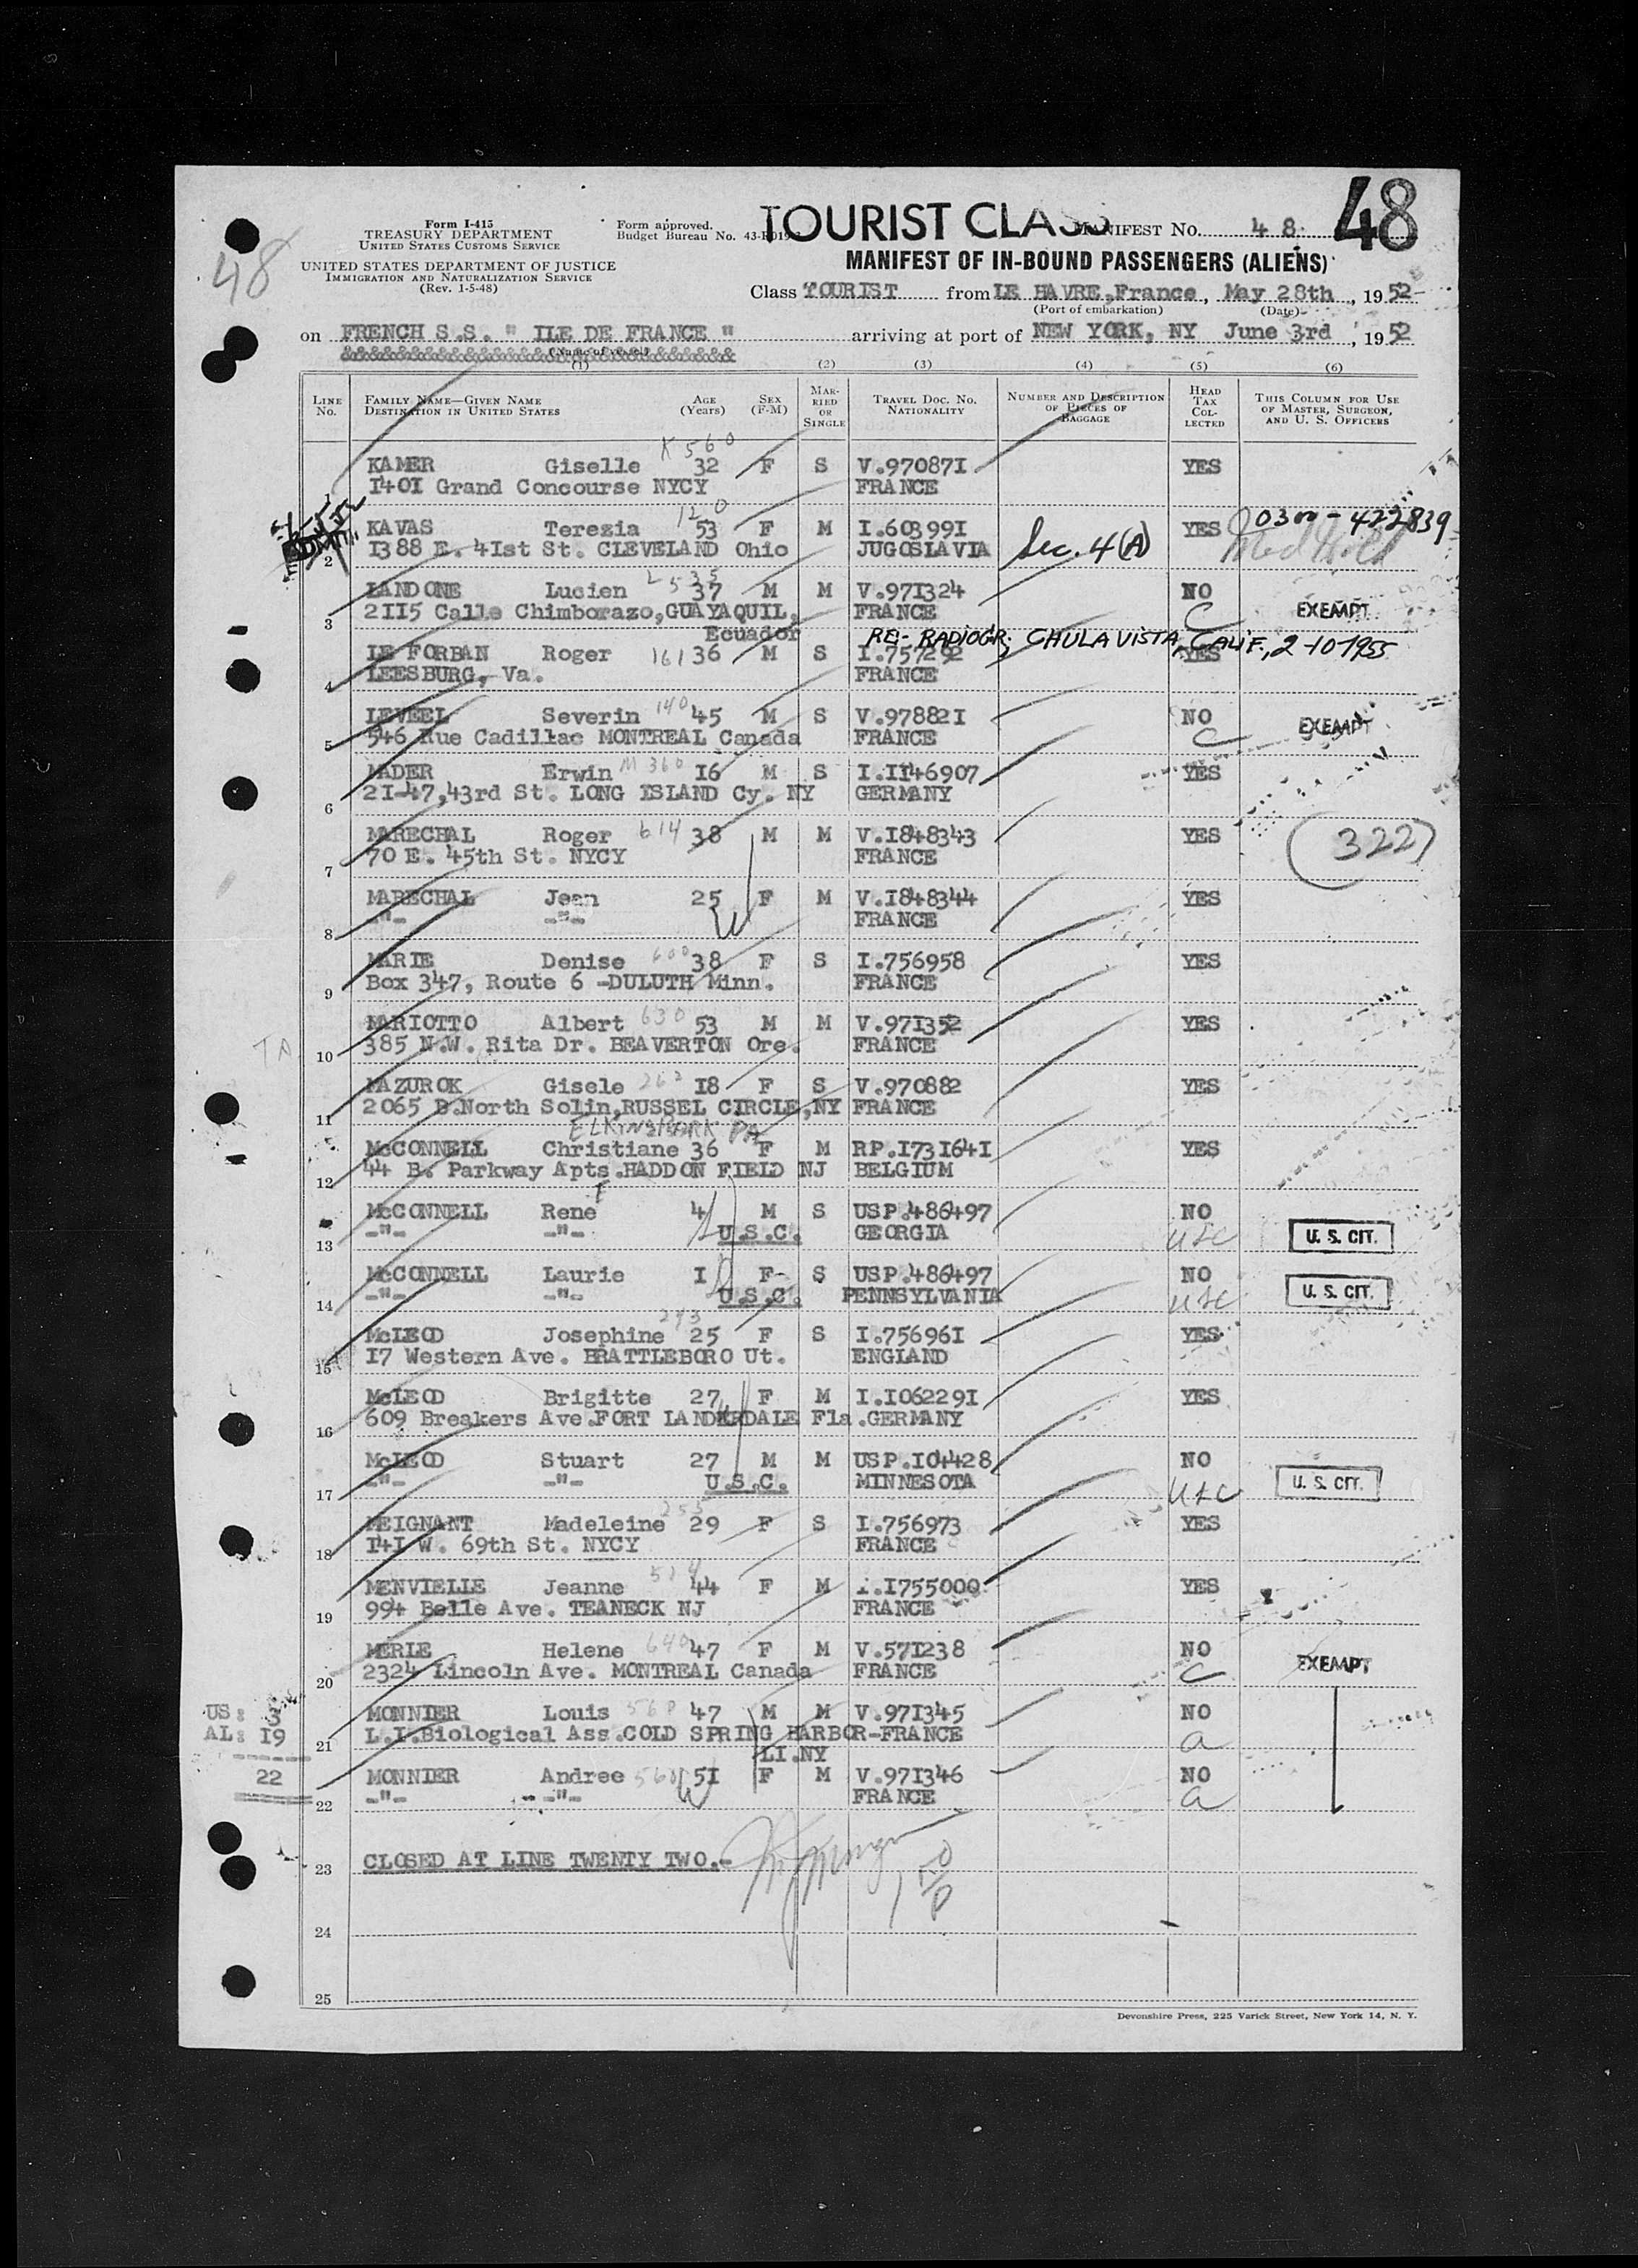 48
48
Form I-415
TREASURY DEPARTMENT
UNITED STATES CUSTOMS SERVICE
UNITED STATES DEPARTMENT OF JUSTICE
IMMIGRATION AND NATURALIZATION SERVICE
(Rev. 1-5-48)
Form approved.
Budget Bureau No.
TOURIST CLASS
MANIFEST No. 48.
MANIFEST OF IN-BOUND PASSENGERS (ALIENS)
Class TOURIST from LE HAVRE,France, May 28th, 1952
(Port of embarkation) (Date)
on FRENCH S.S. " ILE DE FRANCE " arriving at port of NEW YORK, NY June 3rd, 1952
(Name of vessel)
(1) (2) (3) (4) (5) (6)
LINE No. FAMILY NAME—GIVEN NAME DESTINATION IN UNITED STATES AGE (Years) SEX (F-M) MARRIED OR SINGLE TRAVEL DOC. NO. NATIONALITY NUMBER AND DESCRIPTION OF PIECES OF BAGGAGE HEAD TAX COLLECTED THIS COLUMN FOR USE OF MASTER, SURGEON, AND U. S. OFFICERS
K 560
KAMER Giselle 32 F S V.97087I YES
1 I40I Grand Concourse NYCY FRANCE
120
KAVAS Terezia 53 F M I.60399I Sec. 4(A) YES 0300-422839
2 I388 E. 4Ist St. CLEVELAND Ohio JUGOSLAVIA
L 535
LANDONE Lucien 37 M M V.97I324 NO
3 2II5 Calle Chimborazo,GUAYAQUIL, FRANCE C EXEMPT
Ecuador RE- RADIOGR; CHULA VISTA, CALIF., 2-10-1955
LE FORBAN Roger 161 36 M S I.757292 YES
4 LEESBURG, Va. FRANCE
LEVEEL Severin 140 45 M S V.97882I NO
5 546 Rue Cadillac MONTREAL Canada FRANCE C EXEMPT
MADER Erwin M 360 I6 M S I.II46907 YES
6 2I-47,43rd St. LONG ISLAND Cy. NY GERMANY
MARECHAL Roger 614 38 M M V.I848343 YES (322)
7 70 E. 45th St. NYCY FRANCE
MARECHAL Jean 25 F M V.I848344 YES
8 -"- -"- FRANCE
MARIE Denise 600 38 F S I.756958 YES
9 Box 347, Route 6 -DULUTH Minn. FRANCE
MARIOTTO Albert 630 53 M M V.97I352 YES
10 385 N.W. Rita Dr. BEAVERTON Ore. FRANCE
MAZUROK Gisele 262 I8 F S V.970882 YES
11 2065 B.North Solin,RUSSEL CIRCLE,NY FRANCE
ELKINS PARK PA
McCONNELL Christiane 36 F M RP.I73I64I YES
12 44 B. Parkway Apts.HADDON FIELD NJ BELGIUM
McCONNELL Rene 4 M S USP.486497 NO
13 -"- -"- U.S.C. GEORGIA usc U. S. CIT.
McCONNELL Laurie I F- S USP.486497 NO
14 -"- -"- U.S.C. PENNSYLVANIA usc U. S. CIT.
243
McLEOD Josephine 25 F S I.75696I YES
15 I7 Western Ave. BRATTLEBORO Ut. ENGLAND
McLEOD Brigitte 27 F M I.I06229I YES
16 609 Breakers Ave.FORT LANDERDALE Fla.GERMANY
McLEOD Stuart 27 M M USP.I04428 NO
17 -"- -"- U.S.C. MINNESOTA usc U. S. CIT.
255
MEIGNANT Madeleine 29 F S I.756973 YES
18 I4I W. 69th St. NYCY FRANCE
MENVIELLE Jeanne 44 F M I.I755000 YES
19 994 Belle Ave. TEANECK NJ FRANCE
MERLE Helene 640 47 F M V.57I238 NO
20 2324 Lincoln Ave. MONTREAL Canada FRANCE C EXEMPT
US: 3 MONNIER Louis 560 47 M M V.97I345 NO
AL: I9 21 L.I.Biological Ass.COLD SPRING HARBOR-FRANCE a
LI.NY
22 MONNIER Andree 560 5I F M V.97I346 NO
22 -"- -"- FRANCE a
23 CLOSED AT LINE TWENTY TWO.-
24
25
Devonshire Press, 225 Varick Street, New York 14, N. Y.